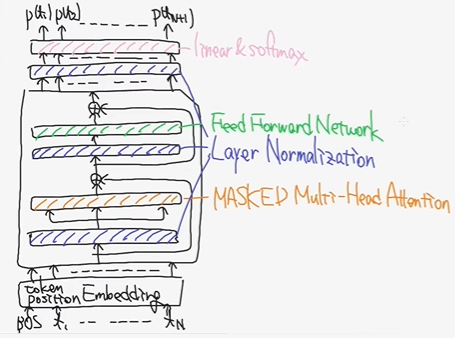 p(t₁) p(t₂) ------ p(t_{N+1})
linear & softmax
Feed Forward Network
Layer Normalization
MASKED Multi-Head Attention
token
position Embedding
BOS t₁ -- ---- t_N